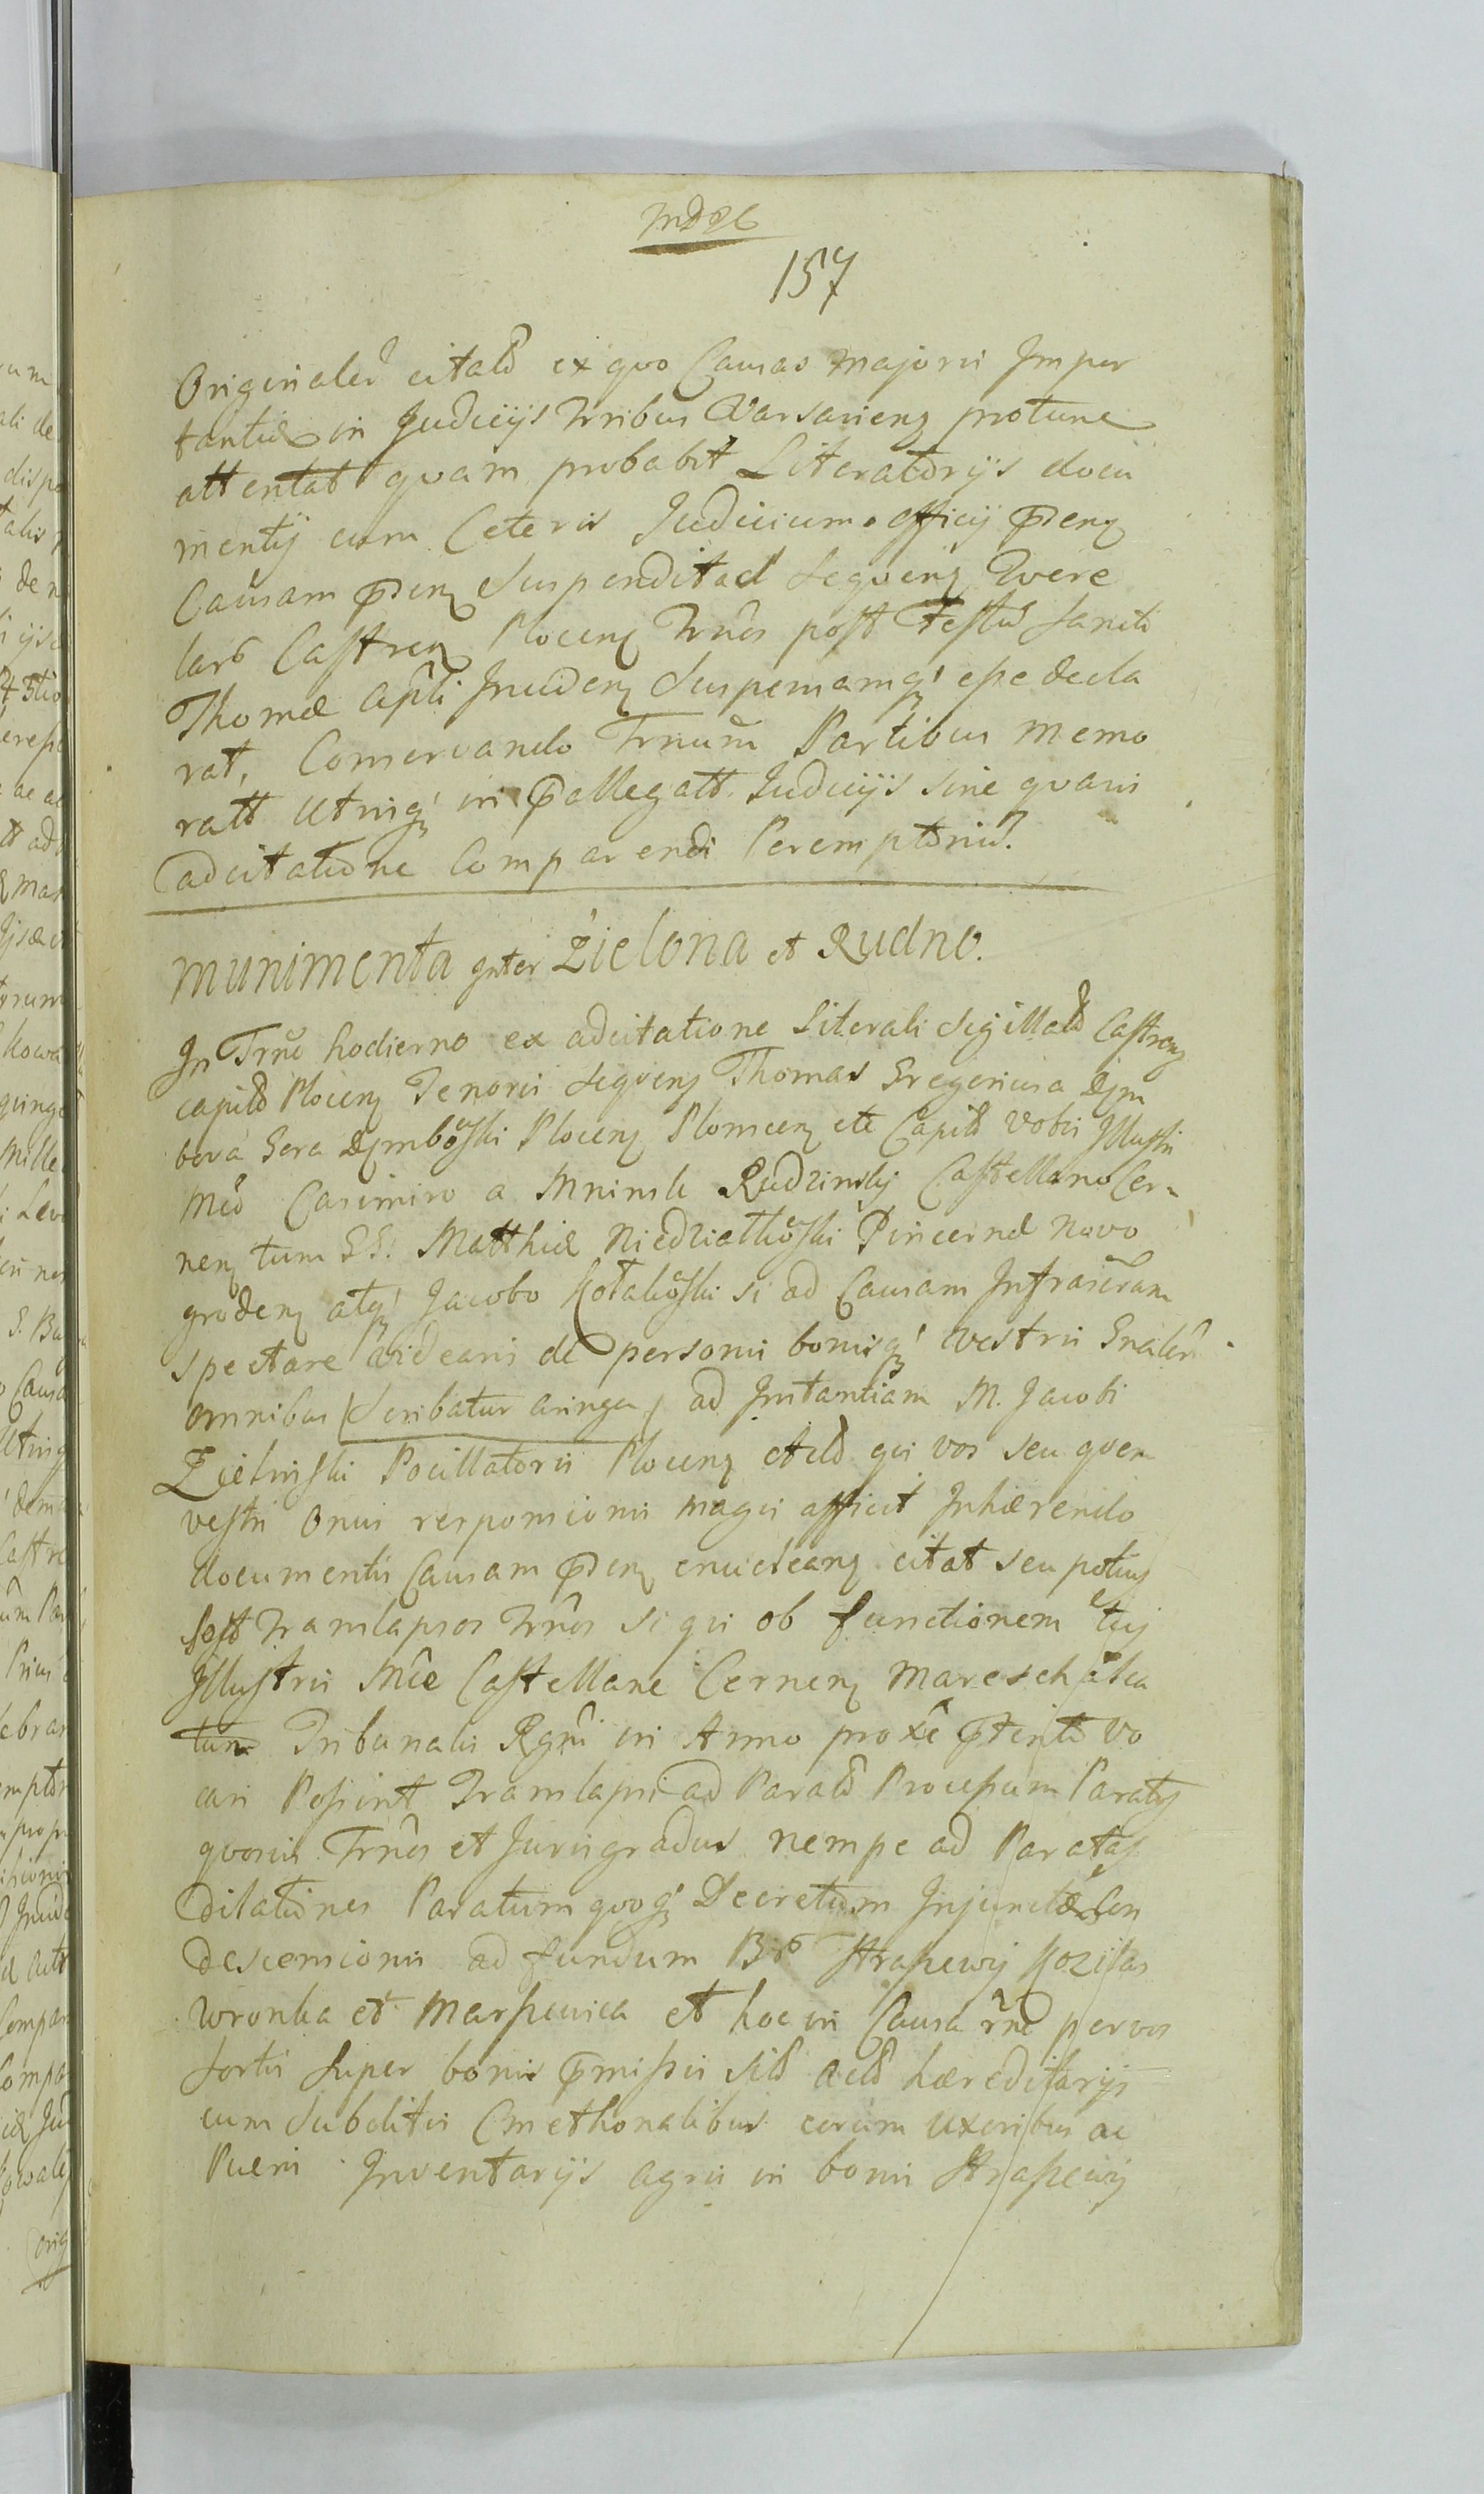 157
Originaler citatô ex quo Causas majoris Impor
tantiæ in Judicijs Tribus Varsavien protunc
attentat quam probabit Literatorijs docu
mentij cum Ceteris Judicium officij p̄den
Causam p̄den Suspendit ad Sequen Quere
lars Castren Plocen Trnôs post Festû Sancti
Thomæ Aplî Inciden Suspensamq' esse decla
rat, Conservando Trnum Partibus memo
ratt Utrisq' in p̄allegatt. Judicijs sine quavis
adcitatione Comparendi Peremptoriû.
Munimenta Inter Zielona et Rudno.
In Trnô hodierno ex adcitatione Literali Sigillatô Castren
capitô Plocen Tenoris Sequen Thomas Gregorius a Dzm
bova Gora Dzmboski Plocen Plonscen etc Capitô Vobis Illustri
Mcô Casimiro a Mninsk Rudzinskj Castellano Cer-
nen tum GG. Matthiæ Niedzialkoski Pincernæ Novo
groden atq' Jacobo Kolakoski si ad Causam Infrascram
spectare videaris de personis bonisq' vestris Gnaler
omnibus (Scribatur aringa) ad Instantiam M. Jacobi
Zielinski Pocillatoris Plocen Actô qui vos seu quem
vestri onus responsionis magis afficit Inhærendo
documentis Causam p̄den enuclean citat seu potius
post Translapsos Trnôs si qui ob functionem tuj
Illustris Mce Castellane Cernen Mareschalca
tum Tribunalis Rgni in Anno proxê p̄terito Vo
cari Possint Translapsi ad Paratô Processum Paratos
quosvis Trnôs et Juris gradus nempe ad Paratas
Dilationes Paratum quoq' Decretum Injunctæ Con
descensionis ad fundum Bnr Strapewy Kozilas
Wronka et Marszewica et hoc in Causa rnê per vos
sortis super bonis p̄missis Sibi Actô hæreditarijs
cum Subditis Cmethonalibus eorum Uxoribus ac
Pueris Inventarijs agris in bonis Strapewy